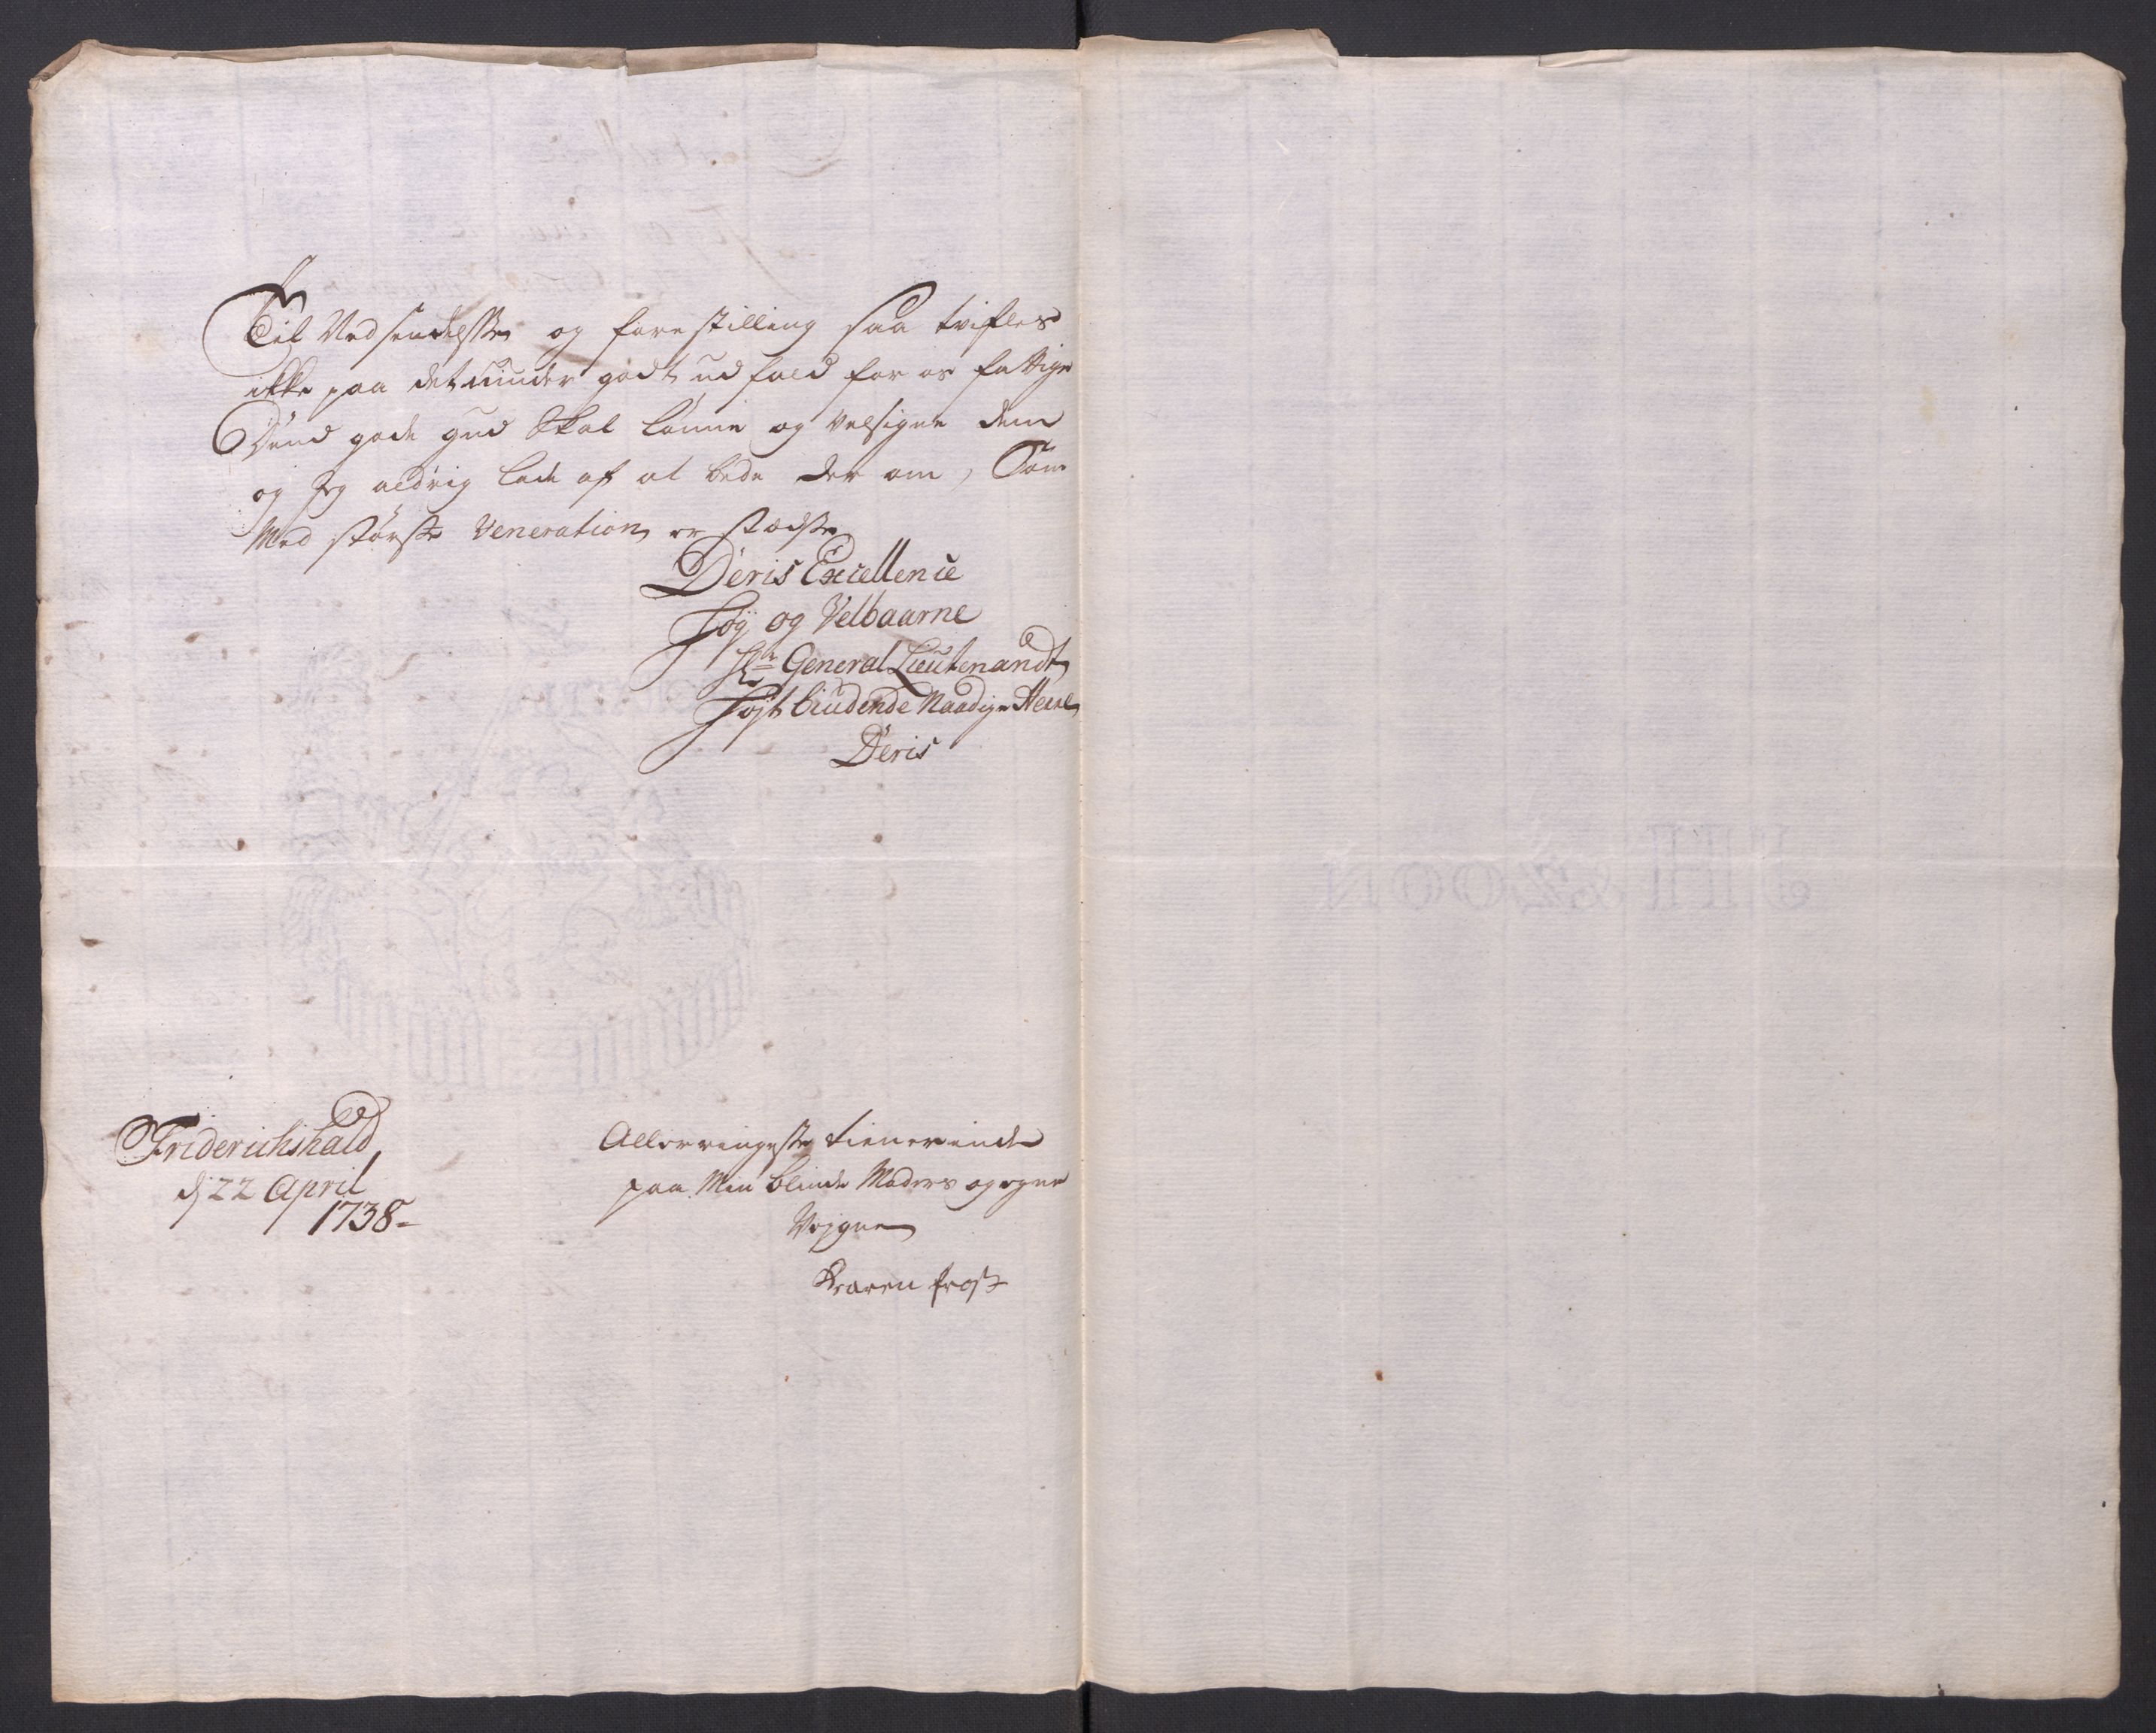 Til Nedsendelsse og forestilling saa tvifles
ikke paa det iunder godt udfald for os fattige
Dend gode gud Skal lønne og velsigne dem
og Jeg aldrig lade af at bede der om, Som
Med størsste Veneration er stædsse
Deris Excellence
Høy og Velbaarne
Hr General Lieutenandt
Højt biudende Naadige Herre
Deris
Friderichshald
dj 22 April
1738-
Allerringesste tienerinde
paa Min blinde Moders og egne
Vegne
Karen Frost
J H & ZOON